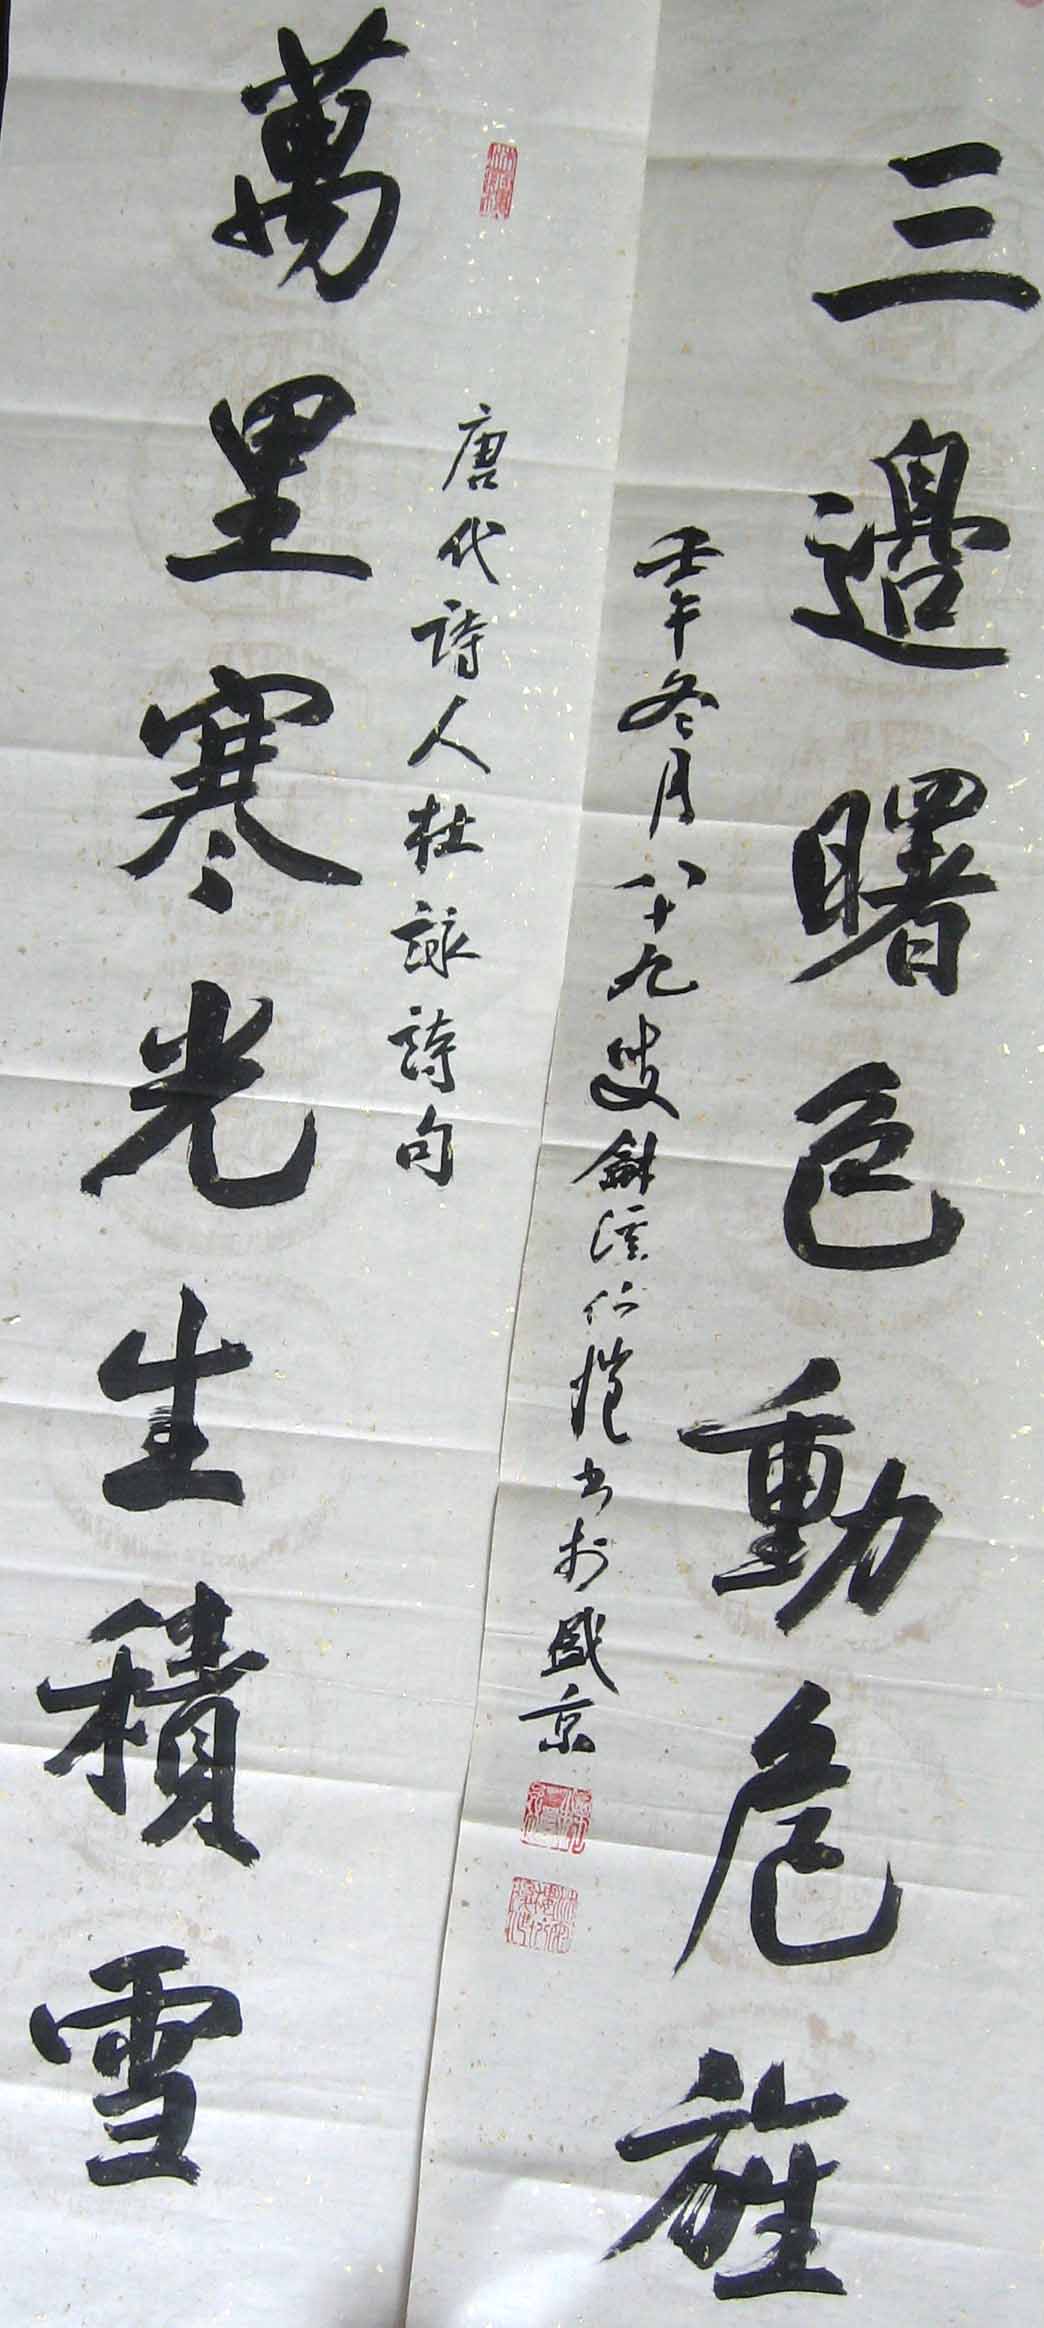 三邊曙色動危旌
壬午冬月八十九叟溪仁书於盛京
唐代詩人杜詠詩句
萬里寒光生積雪